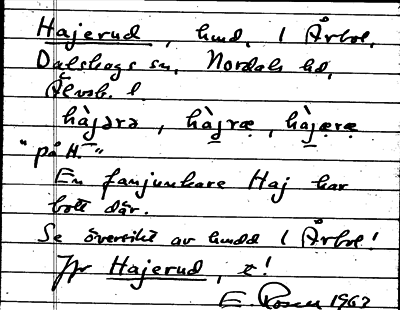 Hajerud, hmd, i Årbol,
Dalskogs sn, Nordals hd,
Älvsb. l
hàjərə, hàjræ, hàjæræ
"på H.–"
En fanjunkare Haj har
bott där.
Se översikt av hmdd i Årbol!
Jfr Hajerud, t!
E. Rosen 1967